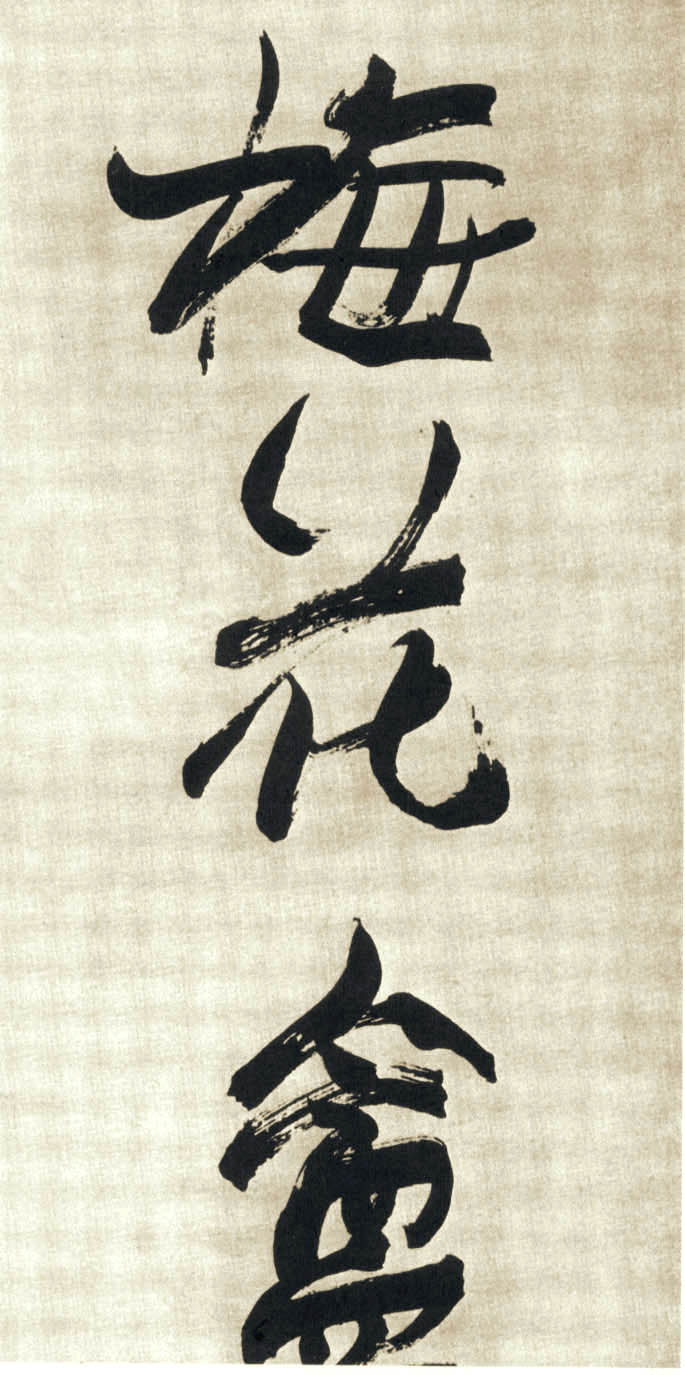 梅花盦